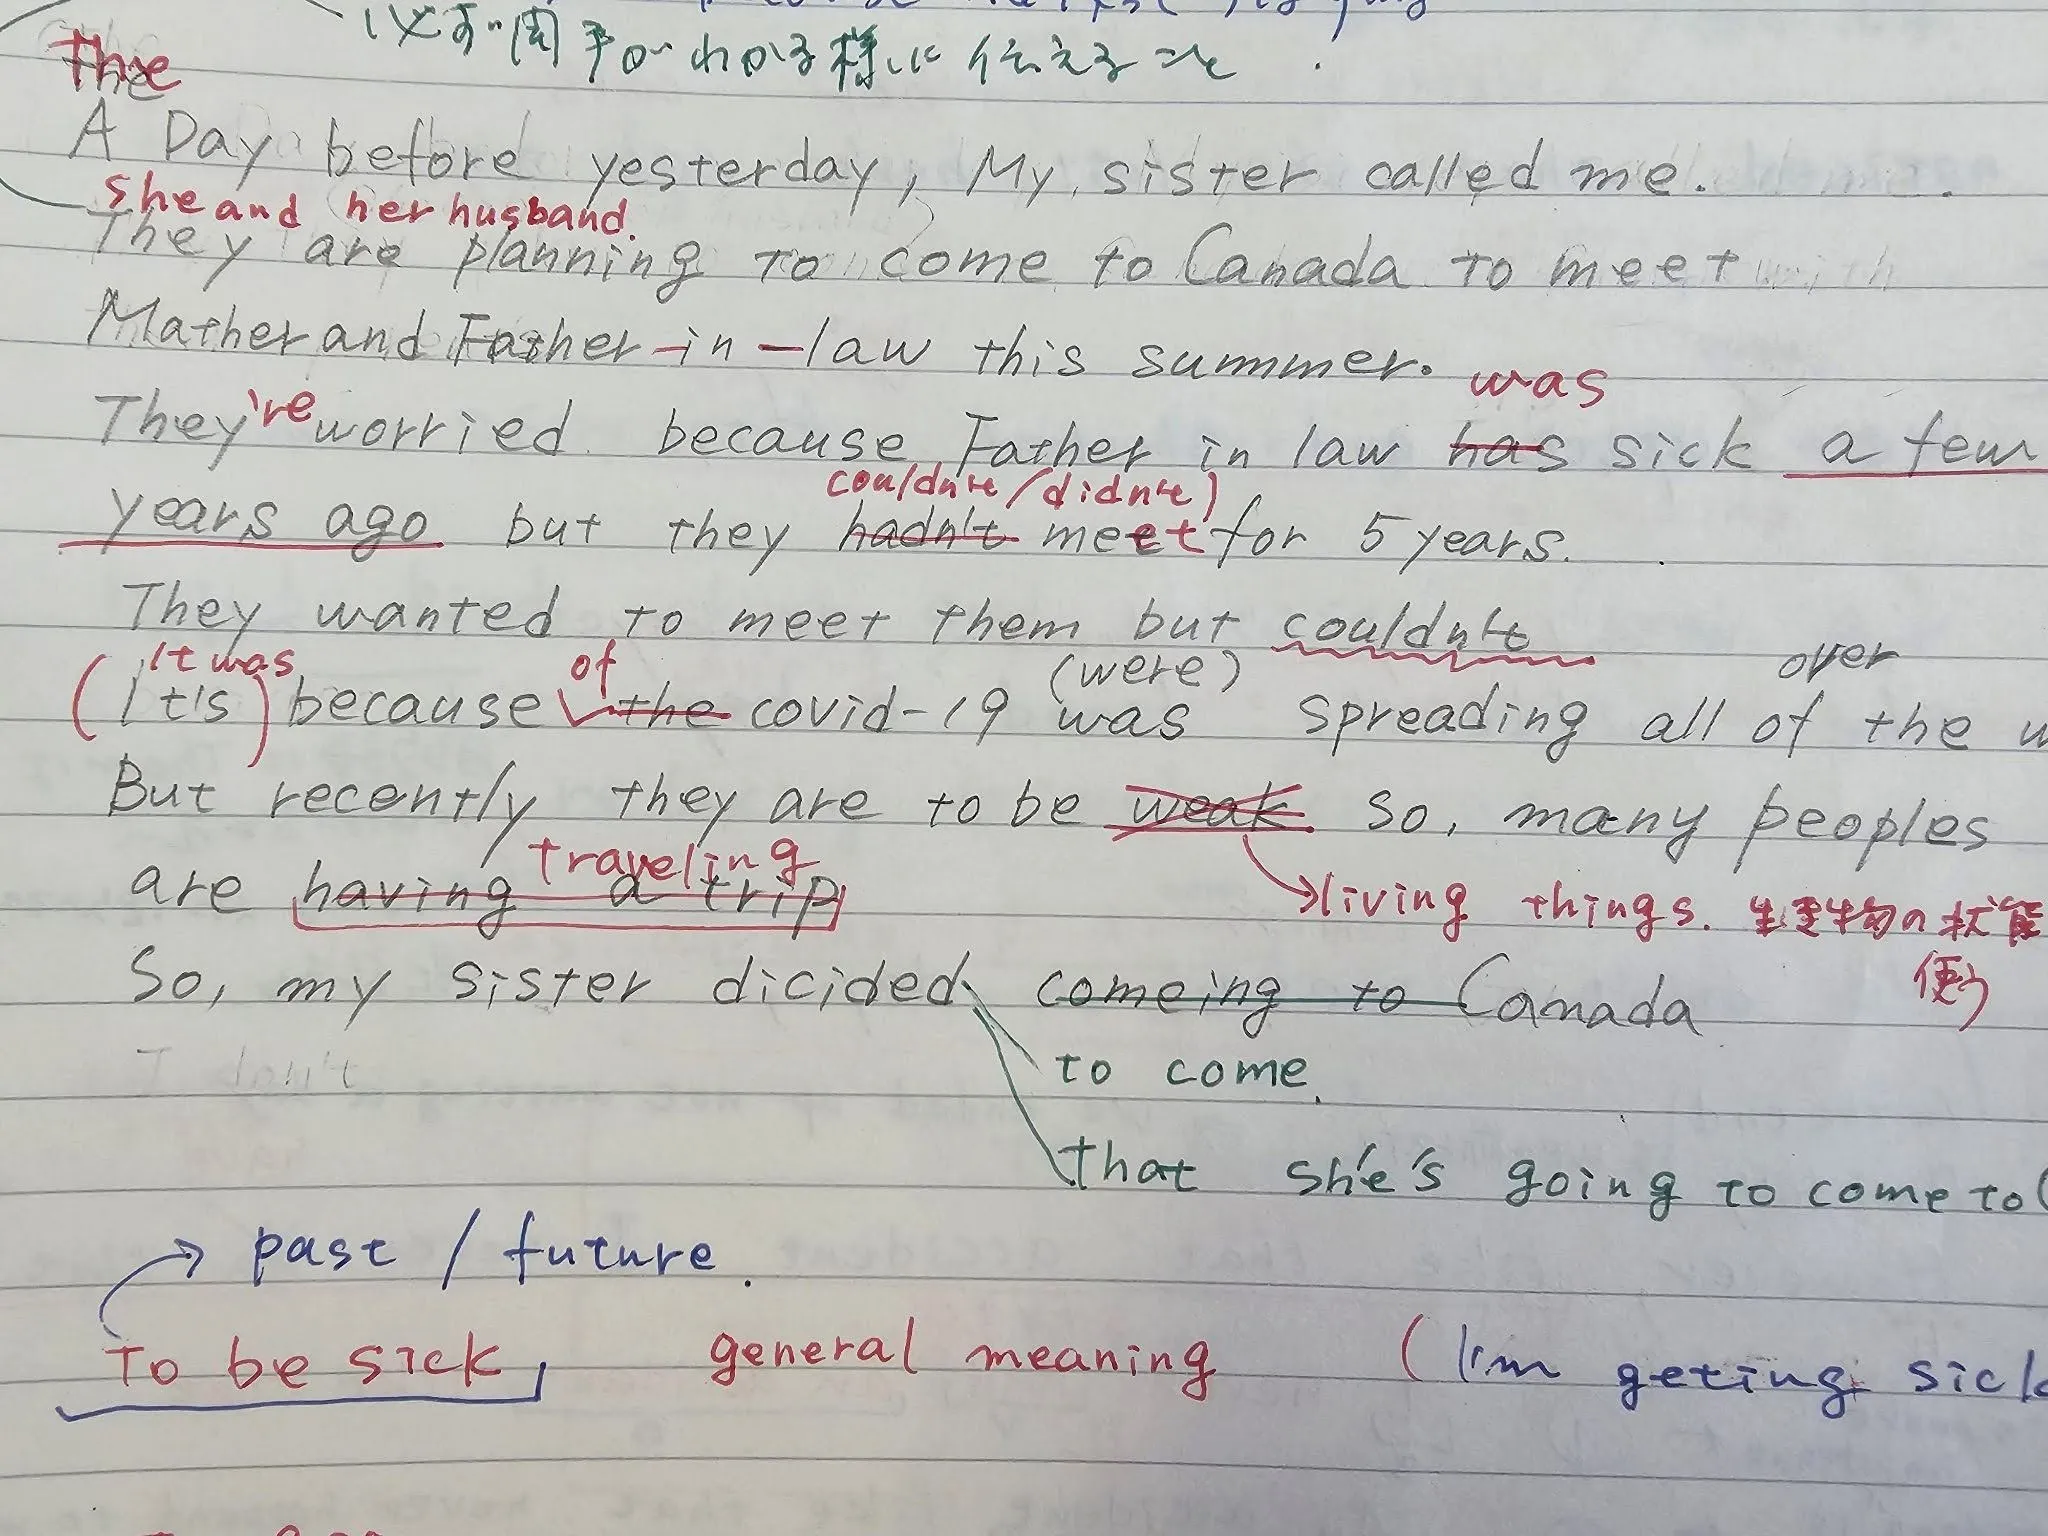 必ず聞き手がわかる様に伝えること.
The
A Day before yesterday, My sister called me.
she and her husband.
They are planning to come to Canada to meet with
Mather and Father-in-law this summer.
was
They're worried because Father in law has sick a few
couldn't/didn't)
years ago but they hadn't meet for 5 years.
They wanted to meet them but couldn't
It was of (were) over
(It's) because the covid-19 was spreading all of the
But recently they are to be weak so, many peoples
traveling
are having a trip
living things. 生き物の状態
使う
So, my sister dicided comeing to Canada
I don't
to come.
that she's going to come to
past / future.
To be sick, general meaning (I'm geting sick